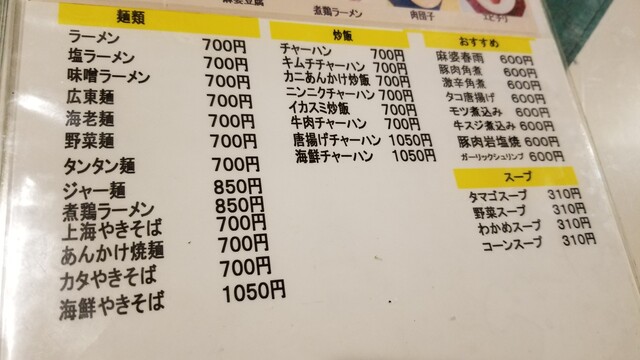 麻婆豆腐
煮鶏ラーメン
肉団子
エビチリ
麺類
ラーメン 700円
塩ラーメン 700円
味噌ラーメン 700円
広東麺 700円
海老麺 700円
野菜麺 700円
タンタン麺 700円
ジャー麺 850円
煮鶏ラーメン 850円
上海やきそば 700円
あんかけ焼麺 700円
カタやきそば 700円
海鮮やきそば 1050円
炒飯
チャーハン 700円
キムチチャーハン 700円
カニあんかけ炒飯 700円
ニンニクチャーハン 700円
イカスミ炒飯 700円
牛肉チャーハン 700円
唐揚げチャーハン 1050円
海鮮チャーハン 1050円
おすすめ
麻婆春雨 600円
豚肉角煮 600円
激辛角煮 600円
タコ唐揚げ 600円
モツ煮込み 600円
牛スジ煮込み 600円
豚肉岩塩焼 600円
ガーリックシュリンプ 600円
スープ
タマゴスープ 310円
野菜スープ 310円
わかめスープ 310円
コーンスープ 310円